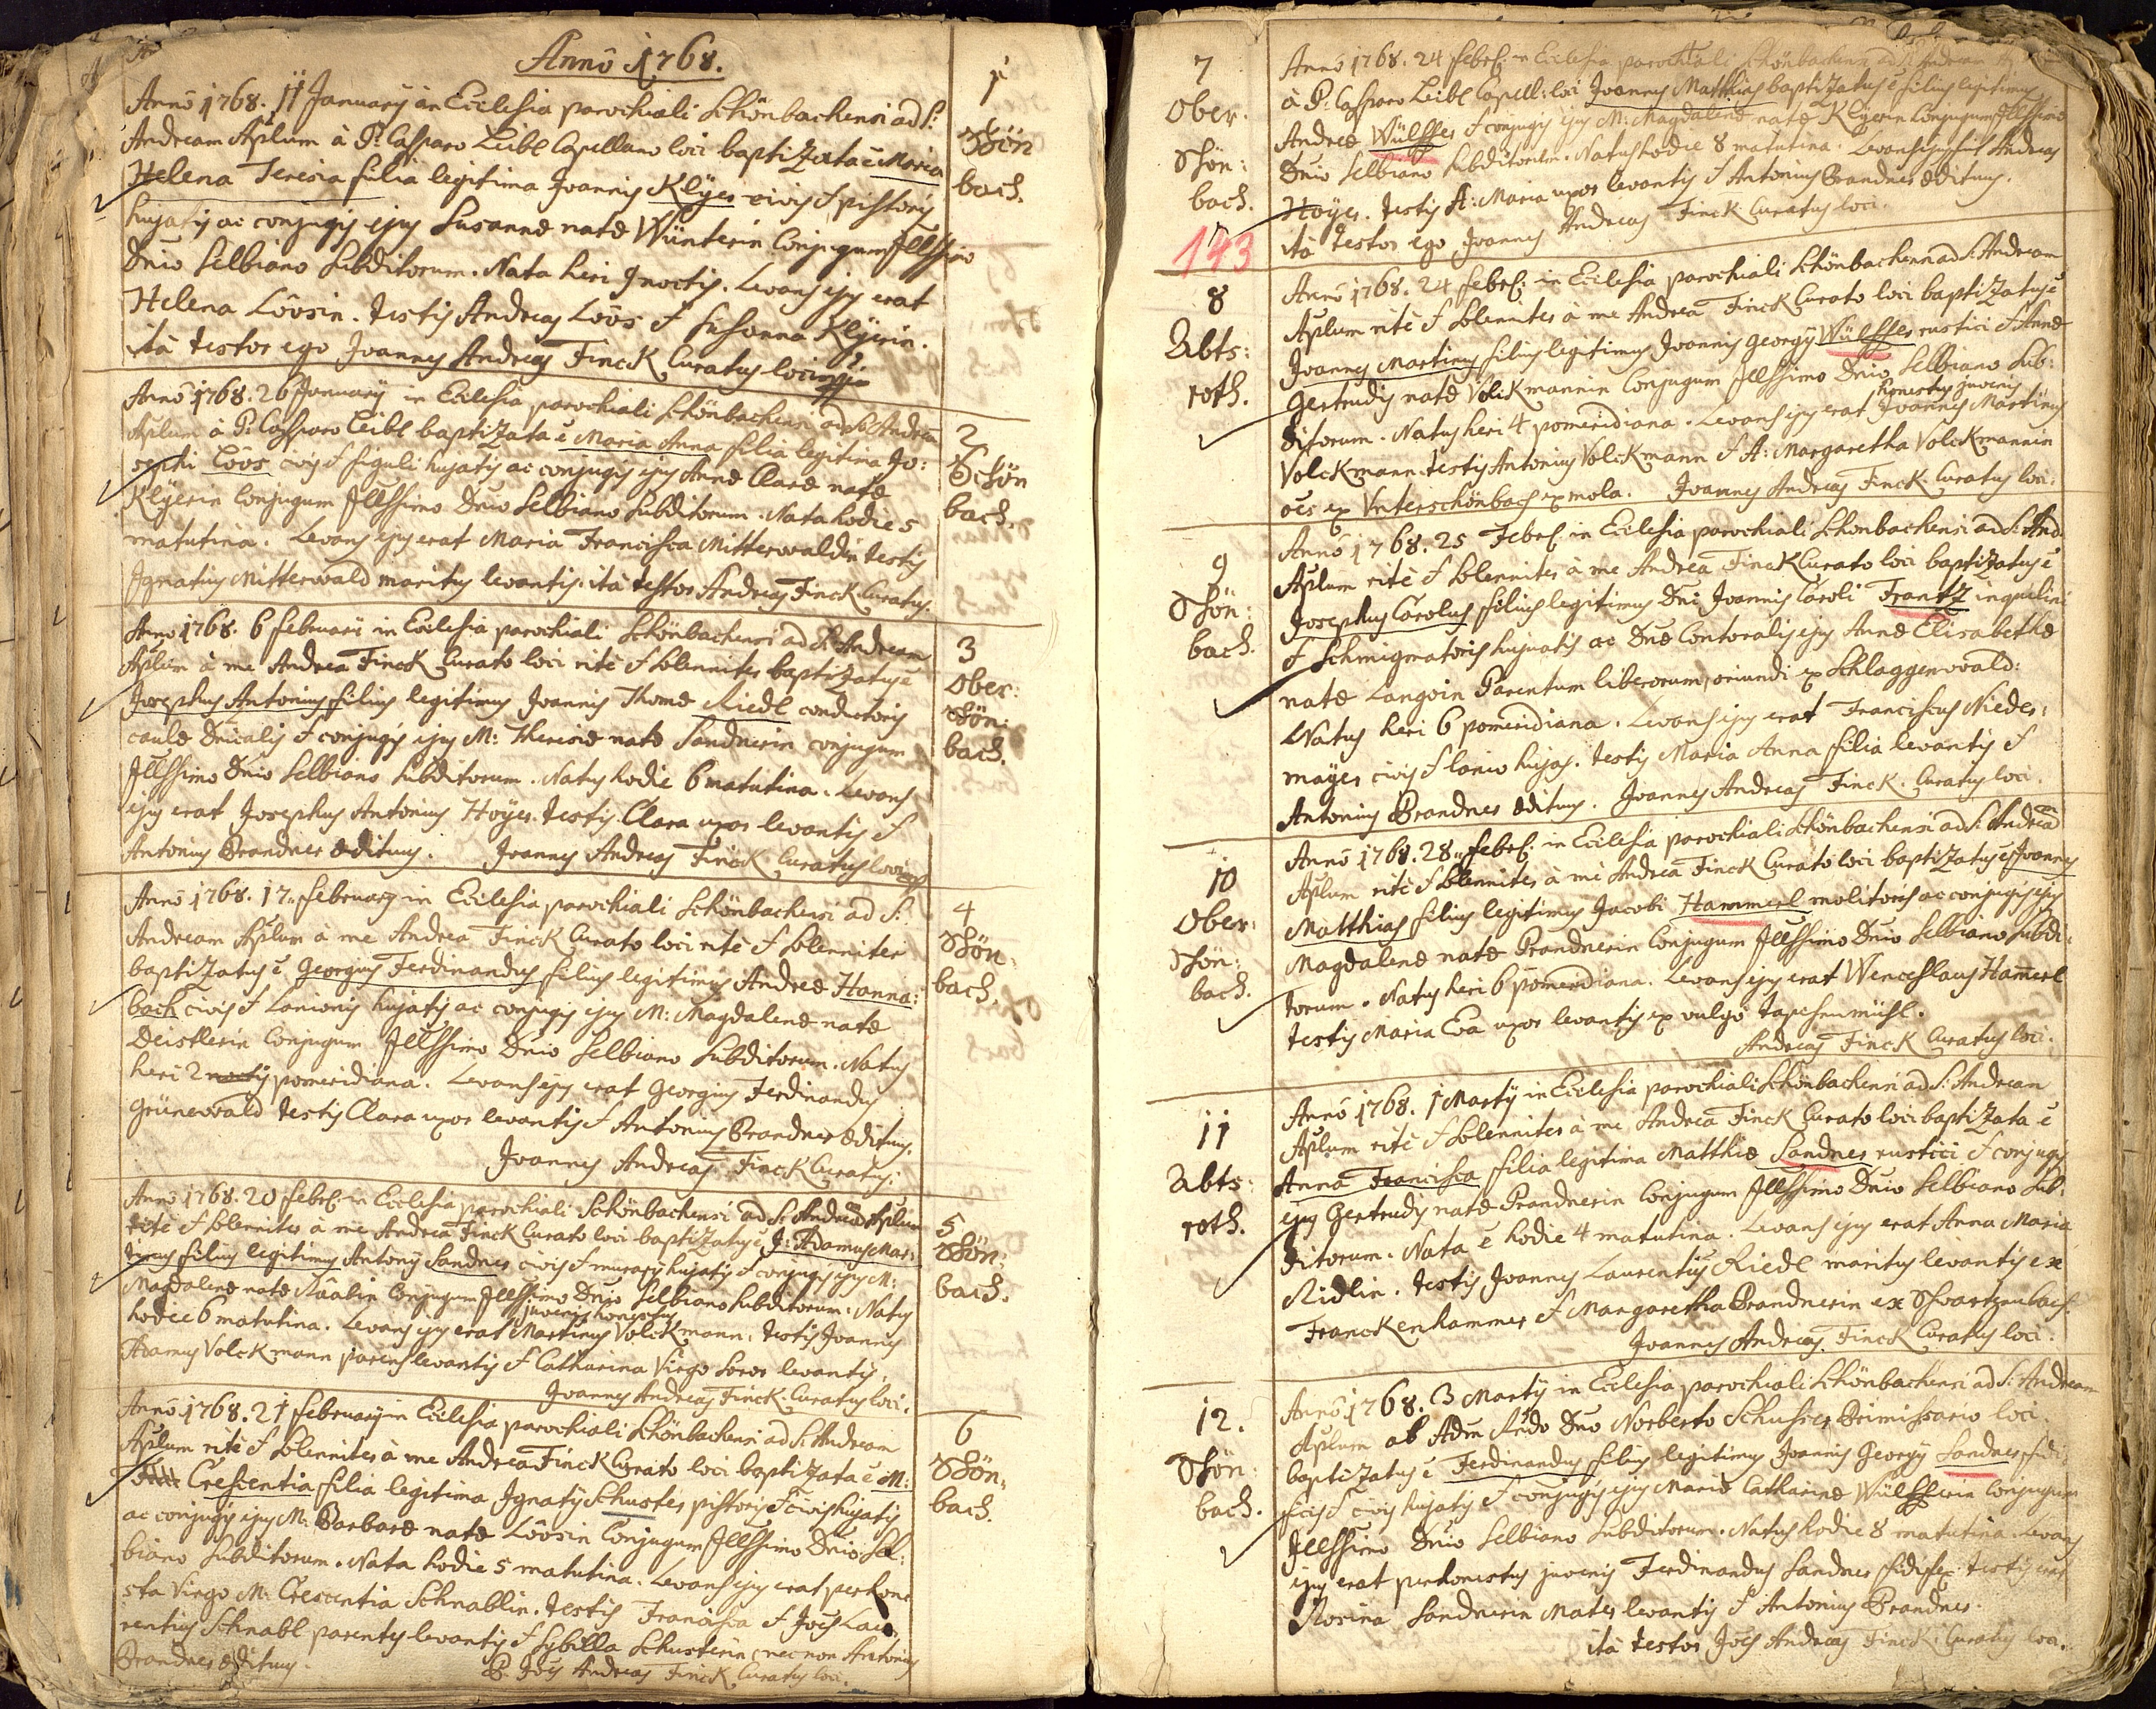 Annô 1768.
Annô 1768. 11 January in Ecclesia parochiali Schönbachensi ad S:
Andream Aplum à P: Casparo Leibl Capellano loci baptizata ē Maria
Helena Teresia filia legitima Joannis Klÿer civis & pistoris
hujatis ac conjugis ejus Susannæ natæ Wünterin Conjugum Illssimo
Dnio Selbiano Subditorum. Nata heri 9 noctis. Levans ejus erat
Helena Lôosin. Testis Andreas Loôs & Susanna Klÿerin.
ità testor ego Joannes Andreas Finck Curatus loci
1
Schön
bach.
Annô 1768. 26 January in Ecclesia parochiali Schönbachensi ad S: Andream
Aplum à P: Casparo Leibl baptizata ē Maria Anna filia legitima Jo:
sephi Loôs civis & figuli hujatis ac conjugis ejus Annæ Claræ natæ
Klÿerin Conjugum Illssimo Dnio Selbiano Subditorum. Nata hodie 5
matutina. Levans ejus erat Maria Francisca Mitterwaldin testis
Ignatius Mitterwald maritus levantis. ità testor Andreas Finck Curatus.
2
Schön
bach.
Anno 1768. 6 februarii in Ecclesia parochiali Schönbachensi ad S: Andream
Aplum à me Andrea Finck Curato loci ritè & solenniter baptizatus ē
Josephus Antonius filius legitimus Joannis Thomæ Riedl conductoris
caulæ Dnicalis & conjugis ejus M: Theresiæ natæ Sandnerin conjugum
Illssimo Dnio Selbiano Subditorum. Natus hodie 6 matutina. Levans
ejus erat Josephus Antonius Hoÿer. testis Clara uxor levantis &
Antonius Brandner ædituus. Joannes Andreas Finck Curatus loci
3
Ober:
schön:
bach.
Annô 1768. 17. february in Ecclesia parochiali Schönbachensi ad S:
Andream Aplum à me Andrea Finck Curato loci ritè & solenniter
baptizatus ē Georgius Ferdinandus filius legitimus Andreæ Hanna:
bach civis & Lanionis hujatis ac conjugis ejus M: Magdalenæ natæ
Deistlerin Conjugum Illssimo Dnio Selbiano Subditorum. Natus
heri 2 noctis pomeridiana. Levans ejus erat Georgius Ferdinandus
Grünewald testis Clara uxor levantis & Antonius Brandner ædituus.
Joannes Andreas Finck Curatus.
4
Schön
bach.
Annô 1768. 20 febr: in Ecclesia parochiali Schönbachensi ad S: Andream Aplum
ritè & solenniter à me Andrea Finck Curato loci baptizatus ē J: Adamus Mar:
tinus filius legitimus Antony Sandner civis & murary hujatis & conjugis ejus M:
Magdalenæ natæ Râabin Conjugum Illssimo Dnio Selbiano Subditorum. Natus
juvenis honestus
hodie 6 matutina. Levans ejus erat Martinus Volckmann. testis Joannes
Adamus Volckmann parens levantis & Catharina Virgo soror levantis.
Joannes Andreas Finck Curatus loci.
5
Schön:
bach.
Annô 1768. 21 february in Ecclesia parochiali Schönbachensi ad S: Andream
Aplum ritè & solenniter à me Andrea Finck Curato loci baptizata ē M:
Crescentia filia legitima Ignaty Schuster pistoris & civis hujatis
ac conjugis ejus M: Barbaræ natæ Lôosin Conjugum Illssimo Dnio Sel:
biano Subditorum. Nata hodie 5 matutina. Levans ejus erat perhone
sta Virgo M: Crescentia Schnablin. testis Francisca & Joēs Lau
rentius Schnabl parentes levantis & Sybilla Schusterin necnon Antonius
Brandner ædituus. Joēs Andreas Finck Curatus loci.
6
Schön
bach.
7
Ober.
schön:
bach.
143
Annô 1768. 24 febr: in Ecclesia parochiali Schönbachensi ad S: Andream
à P: Casparo Leibl Capell: loci Joannes Matthias baptizatus ē filius legitimus
Andreæ Wülffer & conjugis ejus M: Magdalenæ natæ Klÿerin Conjugum Illssimo
Dnio Selbiano Subditorum. Natus hodie 8 matutina. Levans ejus fuit Andreas
Hoÿer. testis A: Maria uxor levantis & Antonius Brandner ædituus.
ità testor ego Joannes Andreas Finck Curatus loci.
8
Abts:
roth.
Annô 1768. 24 febr: in Ecclesia parochiali Schönbachensi ad S: Andream
Aplum ritè & solenniter à me Andrea Finck Curato loci baptizatus ē
Joannes Martinus filius legitimus Joannis Georgy Wülffer rustici & Annæ
Gertrudis natæ Volckmannin Conjugum Illssimo Dnio Selbiano Sub:
honestus juvenis
ditorum. Natus heri 4 pomeridiana. Levans ejus erat Joannes Martinus
Volckmann. testis Antonius Volckmann & A: Margaretha Volckmannin
oēs ex Unterschönbach ex mola. Joannes Andreas Finck Curatus loci.
9
Schön:
bach.
Annô 1768. 25 Febr: in Ecclesia parochiali Schönbachensi ad S: And.
Aplum ritè & solenniter à me Andrea Finck Curato loci baptizatus ē
Josephus Carolus filius legitimus Dni Joannis Caroli Frantz inquilini
& Schmigmatoris hujatis ac Dnæ Contoralis ejus Annæ Elisabethæ
natæ Langoin Parentum liberorum, oriundi ex Schlaggenwald:
Natus heri 6 pomeridiana. Levans ejus erat Franciscus Nieder:
mayer civis & lanio hujas. testis Maria Anna filia levantis &
Antonius Brandner ædituus. Joannes Andreas Finck Curatus loci.
10
Ober:
schön:
bach.
Annô 1768. 28. febr: in Ecclesia parochiali Schönbachensi ad S: Andreā
Aplum ritè & solenniter à me Andrea Finck Curato loci baptizatus ē Joannes
Matthias filius legitimus Jacobi Hammerl molitoris ac conjugis ejus
Magdalenæ natæ Brandnerin Conjugum Illssimo Dnio Selbiano Subdi:
torum. Natus heri 6 pomeridiana. Levans ejus erat Wenceslaus Ham̄erl
testis Maria Eva uxor levantis ex vulgò Tapesenmühl.
Andreas Finck Curatus loci.
11
Abts:
roth.
Annô 1768. 1 Marty in Ecclesia parochiali Schönbachensi ad S: Andream
Aplum ritè & solenniter à me Andrea Finck Curato loci baptizata ē
Anna Francisca filia legitima Matthiæ Sandner rustici & conjugis
ejus Gertrudis natæ Brandnerin Conjugum Illssimo Dnio Selbiano Sub:
ditorum. Nata ē hodie 4 matutina. Levans ejus erat Anna Maria
Ridlin. testis Joannes Laurentius Riedl maritus levantis ex
Franckenhammer & Margaretha Brandnerin ex Schwartzenbach.
Joannes Andreas Finck Curatus loci.
12.
Schön:
bach.
Annô 1768. 3 Marty in Ecclesia parochiali Schönbachensi ad S: Andream
Aplum ab Adm Rndo Dno Norberto Schusser Primissario loci
baptizatus ē Ferdinandus filius legitimus Joannis Georgy Sandner fidi
ficis & civis hujatis & conjugis ejus Mariæ Catharinæ Wülfflerin Conjugum
Illssimo Dnio Selbiano Subditorum. Natus hodie 8 matutina. Levans
ejus erat perhonestus juvenis Ferdinandus Sandner fidifex. testis erat
Rosina Sandnerin Mater levantis & Antonius Brandner.
ità testor Joēs Andreas Finck Curatus loci.